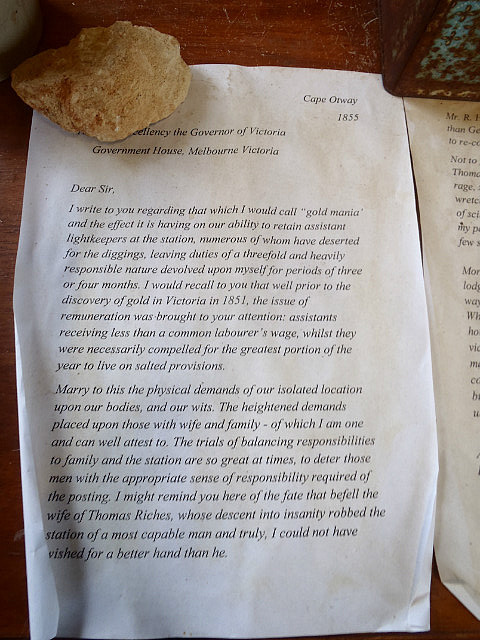 Cape Otway
1855
Excellency the Governor of Victoria
Government House, Melbourne Victoria
Dear Sir,
I write to you regarding that which I would call "gold mania'
and the effect it is having on our ability to retain assistant
lightkeepers at the station, numerous of whom have deserted
for the diggings, leaving duties of a threefold and heavily
responsible nature devolved upon myself for periods of three
or four months. I would recall to you that well prior to the
discovery of gold in Victoria in 1851, the issue of
remuneration was brought to your attention: assistants
receiving less than a common labourer's wage, whilst they
were necessarily compelled for the greatest portion of the
year to live on salted provisions.
Marry to this the physical demands of our isolated location
upon our bodies, and our wits. The heightened demands
placed upon those with wife and family - of which I am one
and can well attest to. The trials of balancing responsibilities
to family and the station are so great at times, to deter those
men with the appropriate sense of responsibility required of
the posting. I might remind you here of the fate that befell the
wife of Thomas Riches, whose descent into insanity robbed the
station of a most capable man and truly, I could not have
wished for a better hand than he.
Mr. R.
than Ge
to re-co
Not to
Thoma
rage,
wretc
of sci
my pa
few s
Mor
lodg
way
Wh
ho
vic